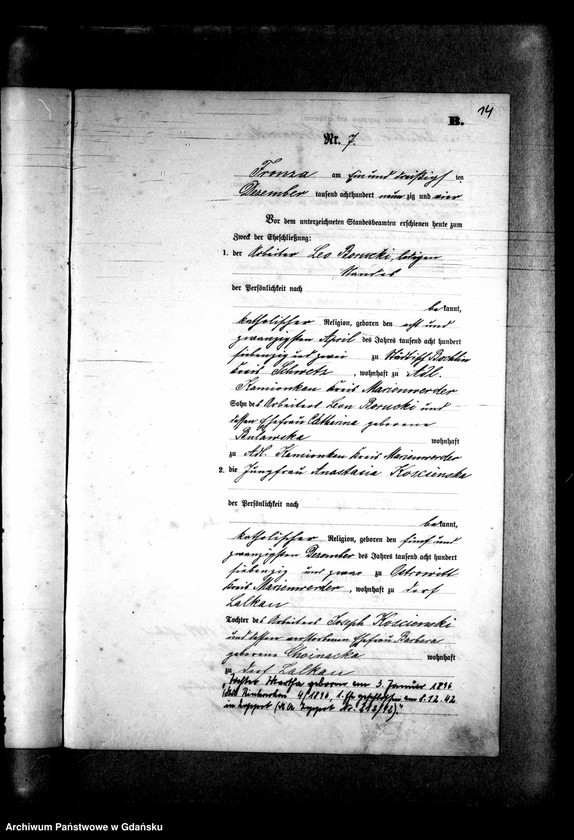 14
B.
Nr. 7.
Fronza am Einund dreißigsten
Dezember tausend achthundert neunzig und vier
Vor dem unterzeichneten Standesbeamten erschienen heute zum
Zweck der Eheschließung:
1. der Arbeiter Leo Borucki, ledigen
Standes
der Persönlichkeit nach
bekannt,
katholischer Religion, geboren den acht und
zwanzigsten April des Jahres tausend acht hundert
siebenzig und zwei zu
Kreis Schwetz, wohnhaft zu Adl.
Kamionken Kreis Marienwerder
Sohn des Arbeiters Leon Borucki und
dessen Ehefrau Catharina geborene
wohnhaft
zu Adl. Kamionken Kreis Marienwerder
2. die Jungfrau Anastasia Koscienska
der Persönlichkeit nach
bekannt,
katholischer Religion, geboren den fünf und
zwanzigsten Dezember des Jahres tausend acht hundert
siebenzig und zwei zu Ostrowitt
Kreis Marienwerder, wohnhaft zu Dorf
Lalkau
Tochter des Arbeiters Joseph Koscienski
und dessen verstorbenen Ehefrau Barbara
geborene Choinacka wohnhaft
zu Dorf Lalkau
"Tochter Martha geboren am 3. Januar 1896
4/1896, 1. Ehe geschlossen am 8.12.42
in Zoppot (St.A. Zoppot Nr. 212/42)."
Archiwum Państwowe w Gdańsku